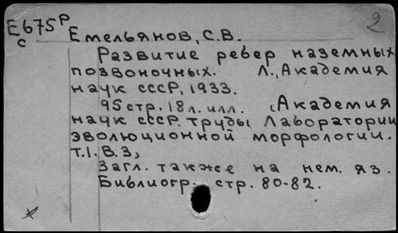 Е675Р Емельянов, С.В. 2
с
Развитие ребер наземных
позвоночных. Л., Академия
наук СССР, 1933.
95 стр. 18 л. илл. (Академия
наук СССР. Труды Лаборатории
эволюционной морфологии.
т.1. В.3,
Загл. также на нем. яз.
Библиогр. стр. 80-82.